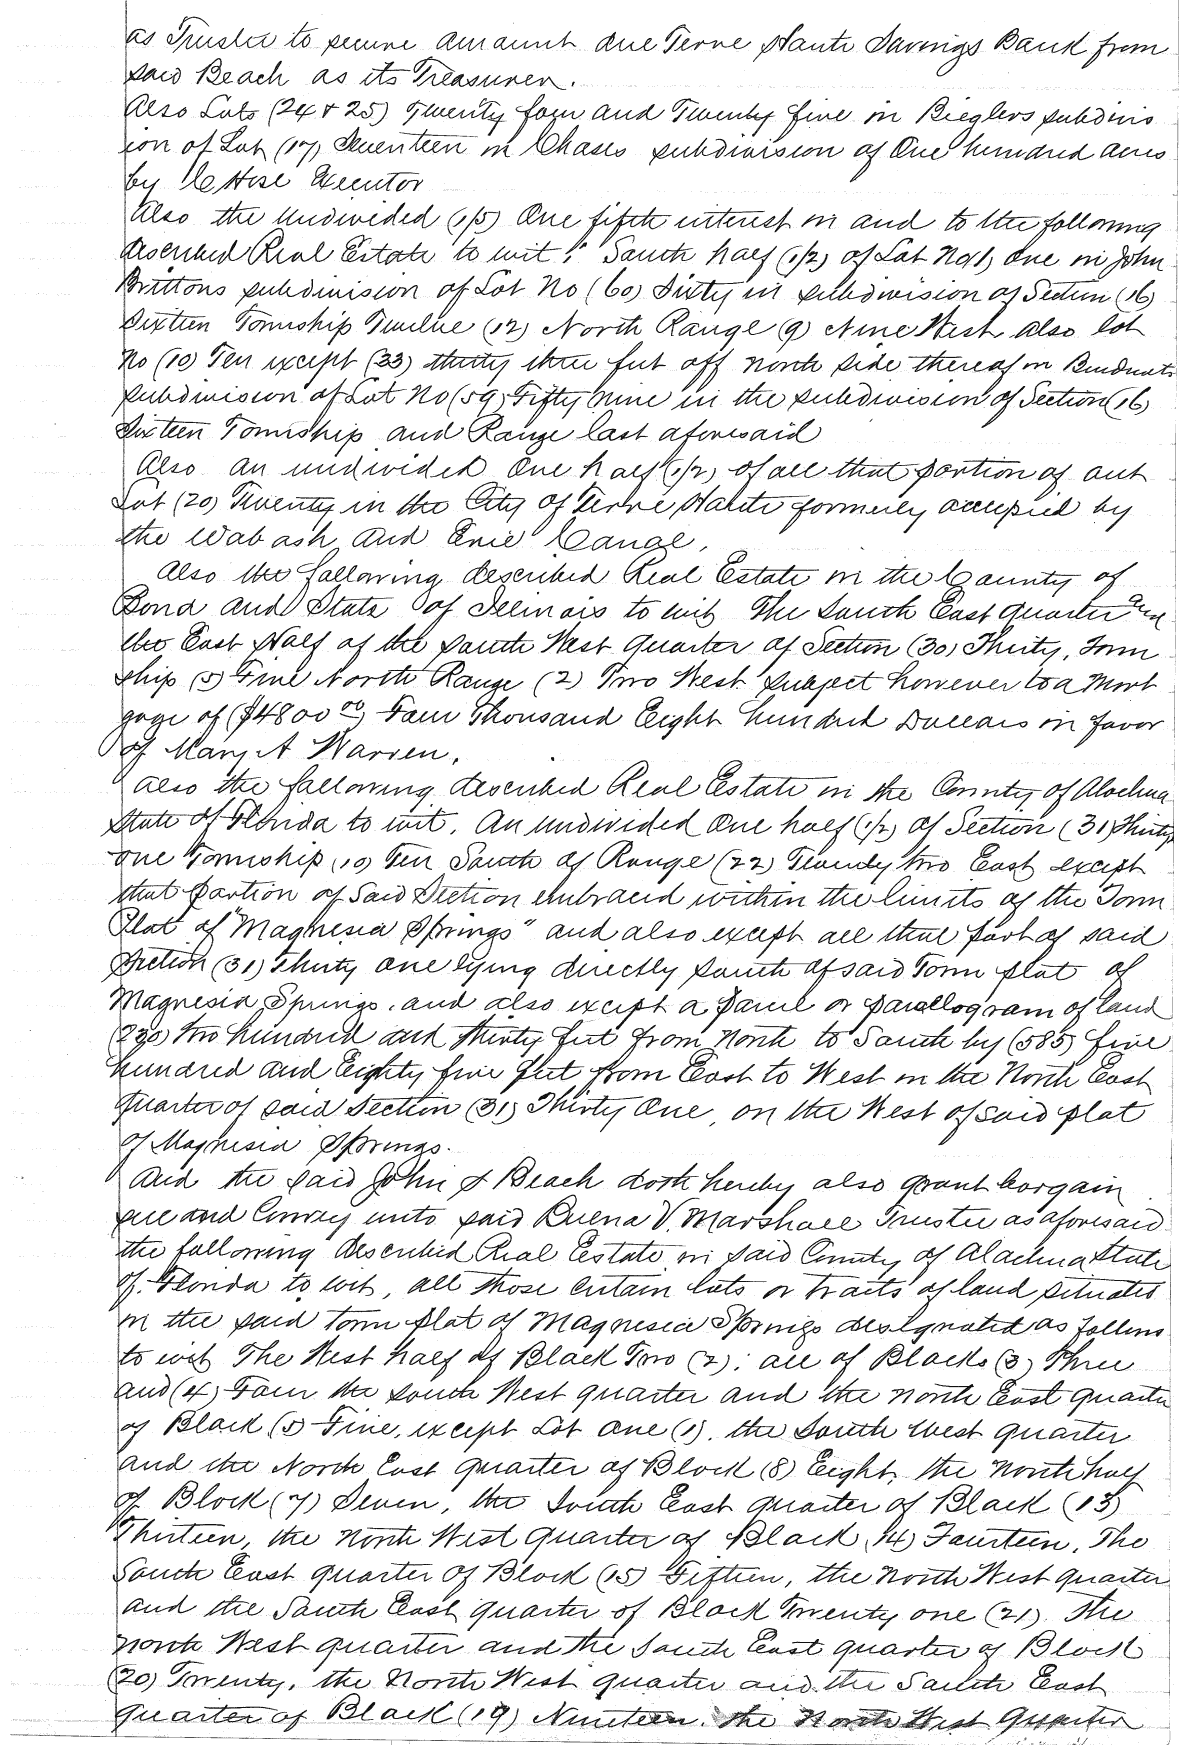 as Trustee to secure amount due Terre Haute Savings Bank from
said Beach as its Treasurer.
Also Lots (24 & 25) Twenty four and Twenty five in Bieglers subdivis
ion of Lot (17) Seventeen in Chases subdivision of One hundred acres
by Hose Executor
Also the undivided (1/5) One fifth interest in and to the following
described Real Estate to wit: South half (1/2) of Lot No (1) One in John
Brittons subdivision of Lot No (60) Sixty in subdivision of Section (16)
Sixteen Township Twelve (12) North Range (9) Nine West also lot
No (10) Ten except (33) thirty three feet off north side thereof in
subdivision of Lot No (59) Fifty nine in the subdivision of Section (16)
Sixteen Township and Range last aforesaid
Also an undivided One half (1/2) of all that portion of out
Lot (20) Twenty in the City of Terre Haute formerly occupied by
the Wabash and Erie Canal.
Also the following described Real Estate in the County of
Bond and State of Illinois to wit The South East quarter and
the East Half of the South West quarter of Section (30) Thirty, Town
ship (5) Five North Range (2) Two West subject however to a Mort
gage of ($4800 00) Four Thousand Eight hundred Dollars in favor
of Mary A Warren.
Also the following described Real Estate in the County of Alachua
State of Florida to wit. An undivided One half (1/2) of Section (31) Thirty
one Township (10) Ten South of Range (22) Twenty two East except
that portion of said Section embraced within the limits of the Town
Plat of "Magnesia Springs" and also except all that part of said
Section (31) Thirty one lying directly south of said Town plat of
Magnesia Springs. and also except a parcel or parellogram of land
(230) two hundred and thirty feet from North to South by (585) five
hundred and Eighty five feet from East to West in the North East
quarter of said Section (31) Thirty One, on the West of said plat
of Magnesia Springs.
And the said John S Beach doth hereby also grant bargain
sell and Convey unto said Buena V. Marshall Trustee as aforesaid
the following described Real Estate in said County of Alachua State
of Florida to wit, all those certain lots or traits of land situated
in the said town plat of Magnesia Springs designated as follows
to wit The West half of Block Two (2); all of Blocks (3) Three
and (4) Four the South West quarter and the North East quarter
of Block (5) Five, except Lot One (1). the South West quarter
and the North East quarter of Block (8) Eight, the North half
of Block (7) Seven, the South East quarter of Block (13)
Thirteen, the North West quarter of Block (14) Fourteen, The
South East quarter of Block (15) Fifteen, the North West quarter
and the South East quarter of Block Twenty one (21). The
North West quarter and the South East quarter of Block
(20) Twenty, the North West quarter and the South East
quarter of Block (19) Nineteen. the North West Quarter